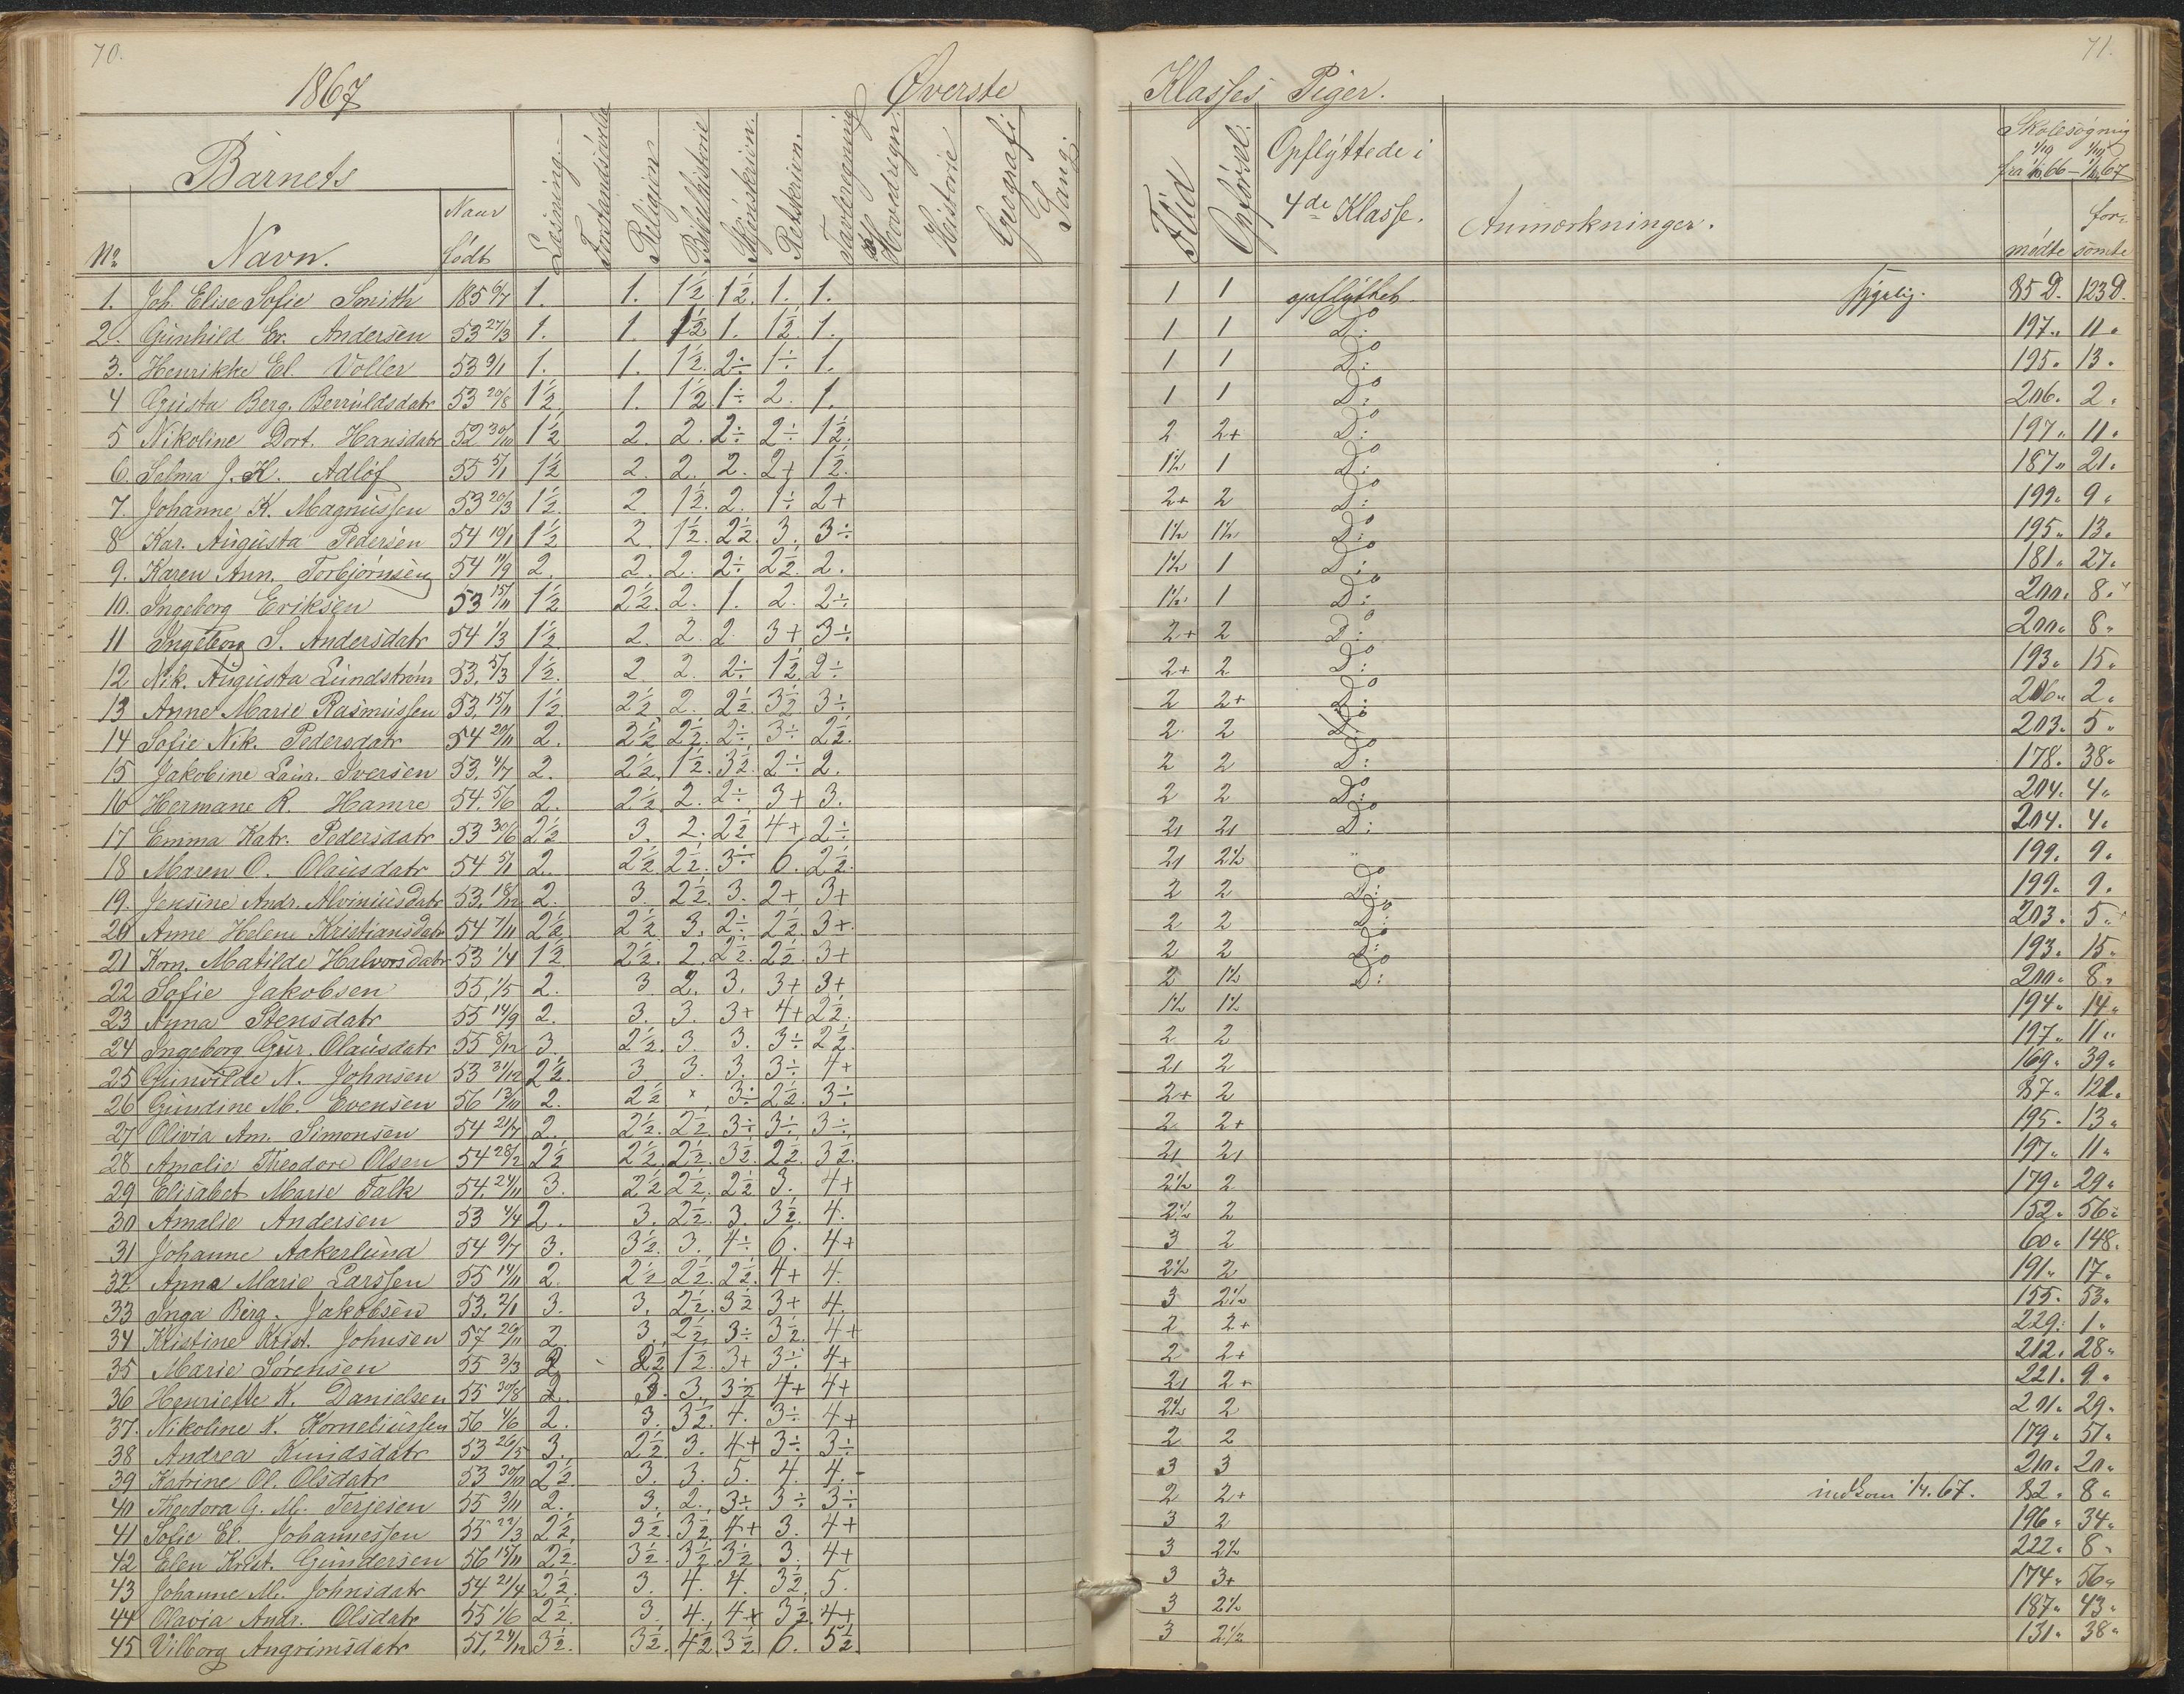 70.
71.
1867
Øverste Klasses Piger.
Barnets
No Navn. Naar født Læsning. Forstandsøvelse Religion Bibelhistorie Skjønskrivn. Retskrivn. Tavleregning Hovedregn. Historie Geografi Sang. Flid Opførsel. Opflyttede i 4de Klasse. Anmærkninger. Skolesøgnig fra 1/10 66 – 1/10 67 mødte forsømte
1. Joh. Elise Sofie Smith 185 6/7 1. 1. 1½ 1½. 1. 1. 1 1 opflyttet. sygelig. 85 D. 123 D.
2. Gunhild Er. Andersen 53 27/3 1. 1. 1½ 1. 1½. 1. 1 1 Do: 197„ 11„
3. Henrikke El. Voller 53 9/1 1. 1. 1½. 2÷ 1÷ 1. 1 1 Do: 195„ 13„
4 Gusta Berg. Berruldsdatr 53 20/8 1½ 1. 1½. 1÷ 2. 1. 1 1 Do: 206„ 2„
5 Nikoline Dort. Hansdatr 52 30/10 1½ 2. 2. 2÷ 2÷ 1½. 2 2+ Do: 197„ 11„
6. Selma J. K. Adløf 55 5/1 1½ 2. 2. 2. 2+ 1½. 1½ 1 Do: 187„ 21„
7. Johanne K. Magnussen 53 20/3 1½. 2. 1½. 2. 1÷ 2+ 2+ 2 Do: 199„ 9„
8 Kar. Augusta Pedersen 54 19/1 1½ 2. 1½. 2½. 3. 3÷ 1½ 1½ Do: 195„ 13„
9. Karen Ann. Torbjørnsen 54 11/9 2. 2. 2. 2÷ 2½. 2. 1½ 1 Do: 181„ 27„
10. Ingeborg Eriksen 53 15/11 1½ 2½. 2. 1. 2. 2÷ 1½ 1 Do: 200„ 8„
11 Ingeborg S. Andersdatr 54 1/3 1½. 2. 2. 2. 3+ 3÷ 2+ 2 Do: 200„ 8„
12 Nik. Augusta Lundstrøm 53, 5/3 1½. 2. 2. 2÷ 1½. 2÷ 2+ 2 Do: 193„ 15„
13 Anne Marie Rasmussen 53, 15/11 1½. 2½ 2. 2½. 3½. 3÷ 2 2+ Do: 206„ 2„
14 Sofie Nik. Pedersdatr 54 20/11 2. 3½ 2½. 2÷ 3÷ 2½. 2 2 Do: 203„ 5„
15 Jakobine Laur. Iversen 53, 4/7 2. 2½. 1½. 3½. 2÷ 2. 2 2 Do: 178„ 38„
16 Hermane R. Hamre 54. 5/6 2. 2½. 2. 2÷ 3+ 3. 2 2 Do: 204„ 4„
17 Emma Katr. Pedersdatr 53 30/6 2½ 3. 2. 2½ 4+ 2÷ 2+ 2+ Do: 204„ 4„
18 Maren O. Olausdatr 54 5/1 2. 2½ 2½. 3÷ 6. 2½. 2+ 2½ „ 199„ 9„
19. Jensine Andr. Alviniusdatr 53, 18/12 2. 3. 2½. 3. 2+ 3+ 2 2 Do: 199„ 9„
20 Anne Helene Kristiansdatr 54 7/11 2½ 2½ 3. 2÷ 2½. 3+ 2 2 Do: 203„ 5„
21 Korn. Matilde Halvorsdatr 53 1/4 1½ 2½. 2. 2½. 2½. 3+ 2 2 Do: 193„ 15„
22 Sofie Jakobsen 55, 1/5 2. 3 2. 3. 3+ 3+ 2 1½ Do: 200„ 8„
23 Anna Stensdatr 55 14/9 2. 3. 3. 3+ 4+ 2½. 1½ 1½ 194„ 14„
24 Ingeborg Gur. Olausdatr 55 8/12 3. 2½. 3. 3. 3÷ 2½. 2 2 197„ 11„
25 Gunvilde N. Johnsen 53 31/12 2½. 3 3. 3. 3÷ 4+ 2+ 2 169„ 39„
26 Gundine M. Evensen 56 13/10 2. 2½ × 3÷ 2½. 3÷ 2+ 2 87„ 121„
27 Olivia Am. Simonsen 54 21/7 2. 2½. 2½. 3÷ 3÷ 3÷ 2 2+ 195„ 13„
28 Amalie Theodore Olsen 54 28/2 2½ 2½ 2½. 3½. 2½. 3½. 2+ 2+ 197„ 11„
29 Elisabet Marie Falk 54, 24/11 3. 2½ 2½. 2½ 3. 4+ 2½ 2 179„ 29„
30 Amalie Andersen 53 4/4 2. 3. 2½. 3. 3½. 4. 2½ 2 152„ 56„
31 Johanne Aakerlund 54 9/7 3. 3½. 3. 4÷ 6. 4+ 3 2 60„ 148„
32 Anna Marie Larssen 55 14/11 2. 2½ 2½. 2½. 4+ 4. 2½ 2 191„ 17„
33 Inga Berg. Jakobsen 53, 2/1 3. 3. 2½. 3½ 3+ 4. 3 2½ 155„ 53„
34 Kristine Krist. Johnsen 57 26/11 2. 3. 2½ 3÷ 3½. 4+ 2 2+ 229„ 1„
35 Marie Sørensen 55 3/3 2. 2½ 1½. 3+ 3÷ 4+ 2 2+ 212„ 28„
36 Henriette K. Danielsen 55 30/8 2. 3. 3. 3½ 4+ 4+ 2+ 2+ 221„ 9„
37. Nikoline K. Korneliussen 56 4/6 2. 3. 3½. 4. 3÷ 4+ 2½ 2 201„ 29„
38 Andrea Knudsdatr 53 26/5 3. 2½ 3. 4+ 3÷ 3÷ 2 2 179„ 51„
39 Katrine Ol. Olsdatr 53 30/10 2½. 3. 3. 5. 4. 4. 3 3 210„ 20„
40 Theodora G. M. Terjesen 55 3/11 2. 3. 2. 3÷ 3÷ 3÷ 2 2+ indkom 1/4. 67. 82„ 8„
41 Sofie El. Johannessen 55 22/3 2½. 3½. 3½ 4+ 3. 4+ 3 2 196„ 34„
42 Elen Krist. Gundersen 56 15/11 2½. 3½. 3½. 3½. 3. 4+ 3 2½ 222„ 8„
43 Johanne M. Johnsdatr 54 21/4 2½. 3. 4. 4. 3½. 5. 3 3+ 174„ 56„
44 Olavia Andr. Olsdatr 55 1/6 2½. 3. 4. 4+ 3½. 4+ 3 2½ 187„ 43„
45 Vilborg Angrimsdatr 51, 24/12 3½. 3½. 4½. 3½ 6. 5½. 3 2½ 131„ 38„